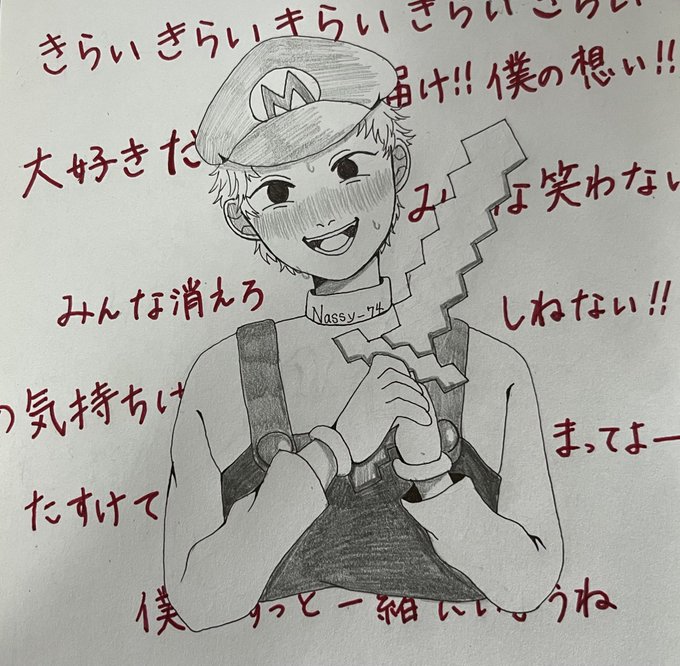 きらい きらい きらい きらい きらい
届け!! 僕の想い!!
大好きだ
M
笑わない
みんな消えろ
Nassy_74
しねない!!
の気持ちは
まってよー
たすけて
僕 ずっと一緒にいようね